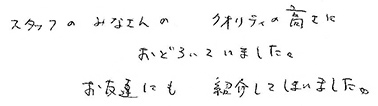 スタッフの みなさんの クオリティの高さに
おどろいていました。
お友達にも 紹介してしまいました。